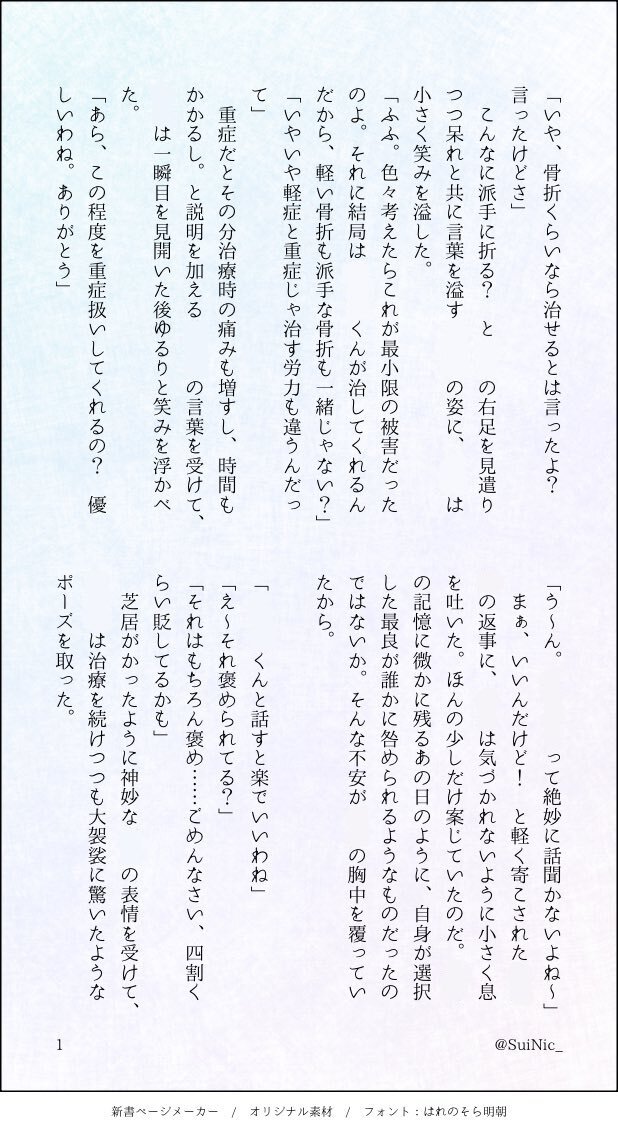 「いや、骨折くらいなら治せるとは言ったよ?
言ったけどさ」
　こんなに派手に折る?　と　　の右足を見遣り
つつ呆れと共に言葉を溢す　　の姿に、　　は
小さく笑みを溢した。
「ふふ。色々考えたらこれが最小限の被害だった
のよ。それに結局は　　くんが治してくれるん
だから、軽い骨折も派手な骨折も一緒じゃない?」
「いやいや軽症と重症じゃ治す労力も違うんだっ
て」
　重症だとその分治療時の痛みも増すし、時間も
かかるし。と説明を加える　　の言葉を受けて、
　　は一瞬目を見開いた後ゆるりと笑みを浮かべ
た。
「あら、この程度を重症扱いしてくれるの?　優
しいわね。ありがとう」
「う〜ん。　　って絶妙に話聞かないよね〜」
　まぁ、いいんだけど!　と軽く寄こされた
　　の返事に、　　は気づかれないように小さく息
を吐いた。ほんの少しだけ案じていたのだ。
の記憶に微かに残るあの日のように、自身が選択
した最良が誰かに咎められるようなものだったの
ではないか。そんな不安が　　の胸中を覆ってい
たから。
「　　くんと話すと楽でいいわね」
「え〜それ褒められてる?」
「それはもちろん褒め……ごめんなさい、四割く
らい貶してるかも」
　芝居がかったように神妙な　　の表情を受けて、
　　は治療を続けつつも大袈裟に驚いたような
ポーズを取った。
1
@SuiNic_
新書ページメーカー　/　オリジナル素材　/　フォント：はれのそら明朝